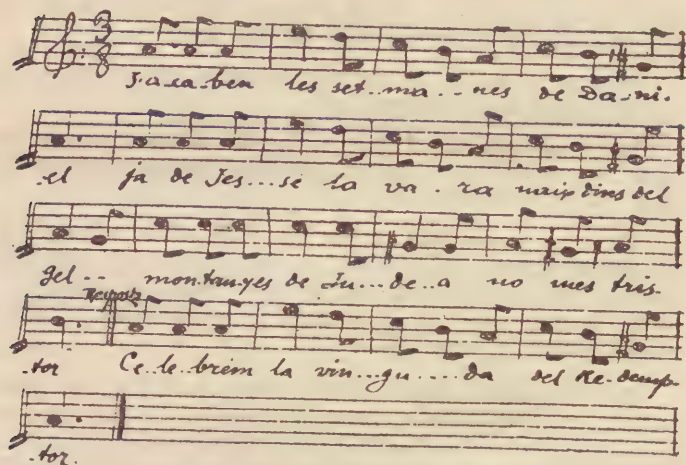 J-a ca-ben les set..ma..nes de Da..ni.
.el ja de Jes...sé la va.ra naix dins del
gel.. montanyes de Ju..de..a no mes tris.
Resposta
.tor Ce.le.brem la vin..gu....da del Re.demp.
.tor.